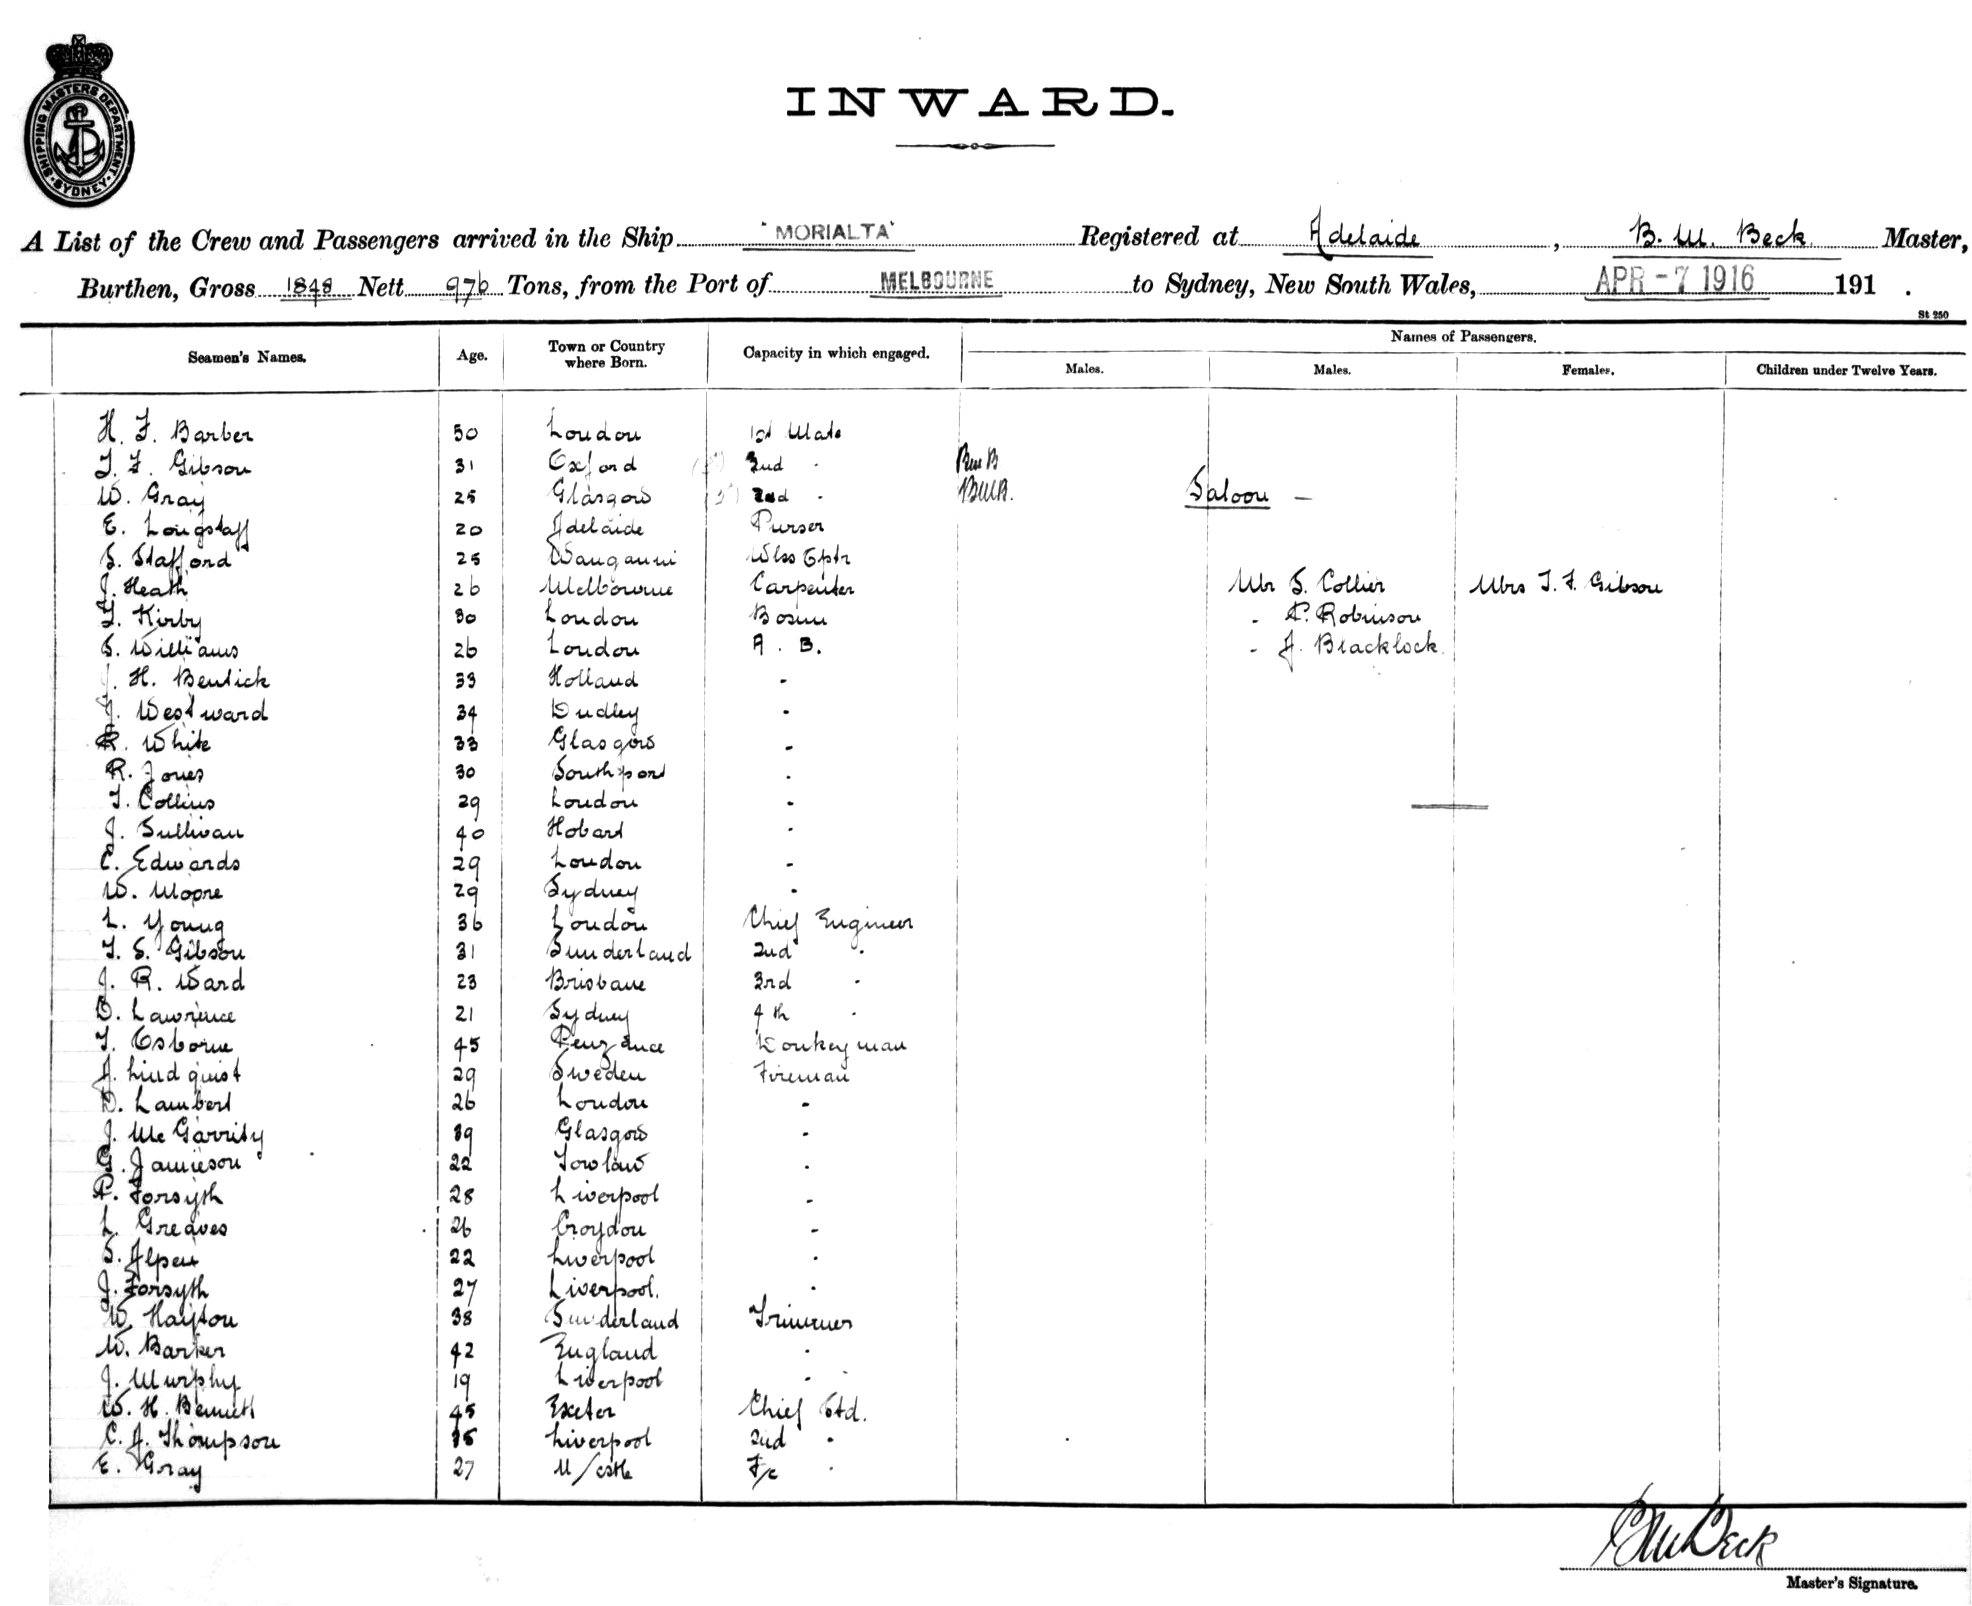 SHIPPING MASTERS DEPARTMENT
SYDNEY
INWARD.
A List of the Crew and Passengers arrived in the Ship "MORIALTA" Registered at Adelaide, B. M. Beck Master,
Burthen, Gross 1848 Nett 976 Tons, from the Port of MELBOURNE to Sydney, New South Wales, APR -7 1916 191 .
St 250
Seamen's Names. Age. Town or Country where Born. Capacity in which engaged. Names of Passengers.
Males. Males. Females. Children under Twelve Years.
H. F. Barber 50 London 1st Mate
T. F. Gibson 31 Oxford 2nd "
W. Gray 25 Glasgow 2nd " BMB. Saloon —
E. Longstaff 20 Adelaide Purser
S. Stafford 25 Wanganui Wlss Optr
J. Heath 26 Melbourne Carpenter Mr S. Collier Mrs T. F. Gibson
T. Kirby 30 London Bosun " P. Robinson
S. Williams 26 London A. B. " J. Blacklock.
J. H. Bentick 33 Holland "
J. Westward 34 Dudley "
R. White 33 Glasgow "
R. Jones 30 Southport "
T. Collins 29 London "
J. Sullivan 40 Hobart "
C. Edwards 29 London "
W. Moore 29 Sydney "
L. Young 36 London Chief Engineer
T. S. Gibson 31 Sunderland 2nd "
J. R. Ward 23 Brisbane 3rd "
D. Lawrence 21 Sydney 4th "
T. Osborne 45 Penzance Donkeyman
A. Lindquist 29 Sweden Fireman
D. Lambert 26 London "
J. McGarrity 39 Glasgow "
G. Jamieson 22 Towlaw "
P. Forsyth 28 Liverpool "
L. Greaves 26 Croydon "
S. Alpen 22 Liverpool "
J. Forsyth 27 Liverpool. "
W. Hayton 38 Sunderland Trimmer
W. Barker 42 England "
J. Murphy 19 Liverpool "
W. H. Bennett 45 Exeter Chief Std.
C. A. Thompson Liverpool 2nd "
E. Gray 27 N/cstle F/c "
BMBeck
Master's Signature.